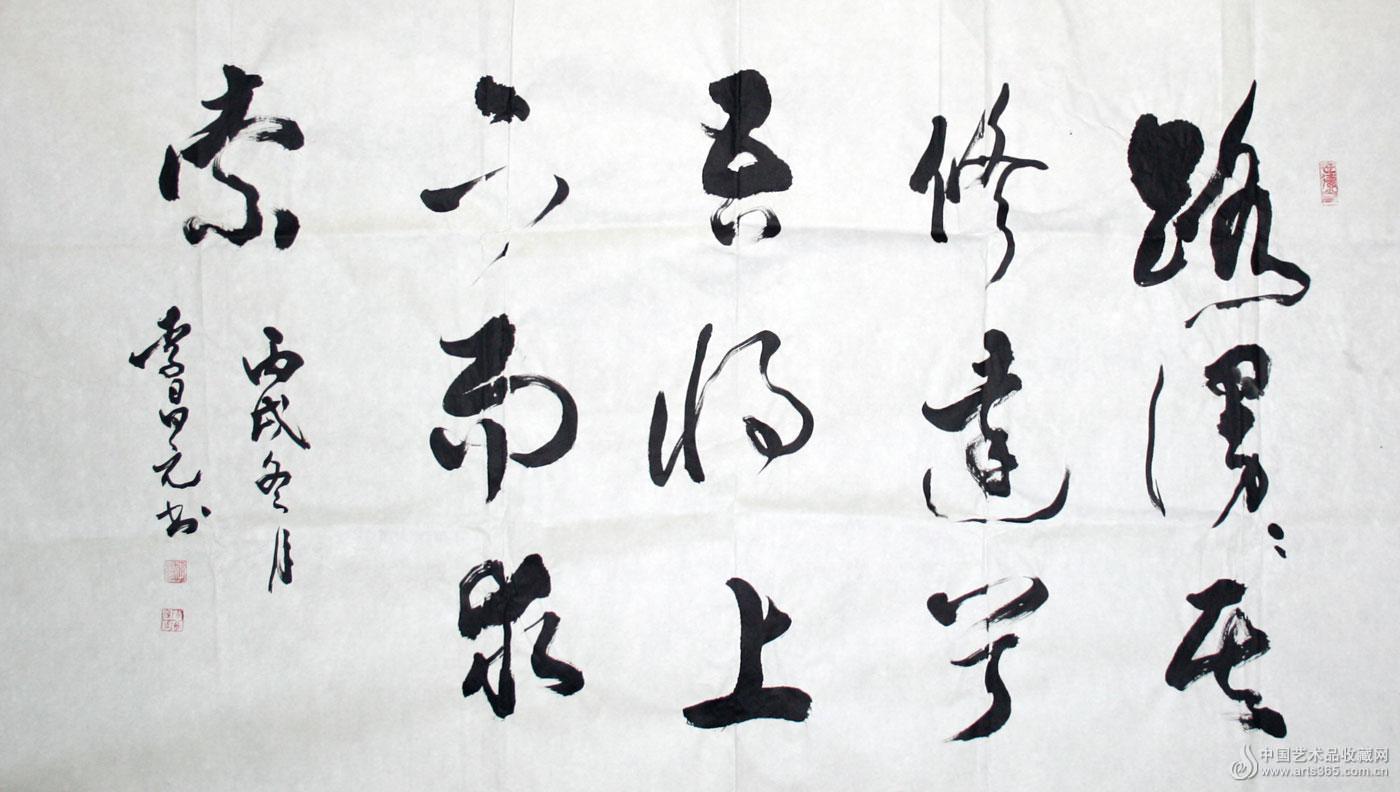 路漫漫其
修遠兮
吾将上
下而求
索
丙戌冬月
李昌元书
中国艺术品收藏网
www.arts365.com.cn